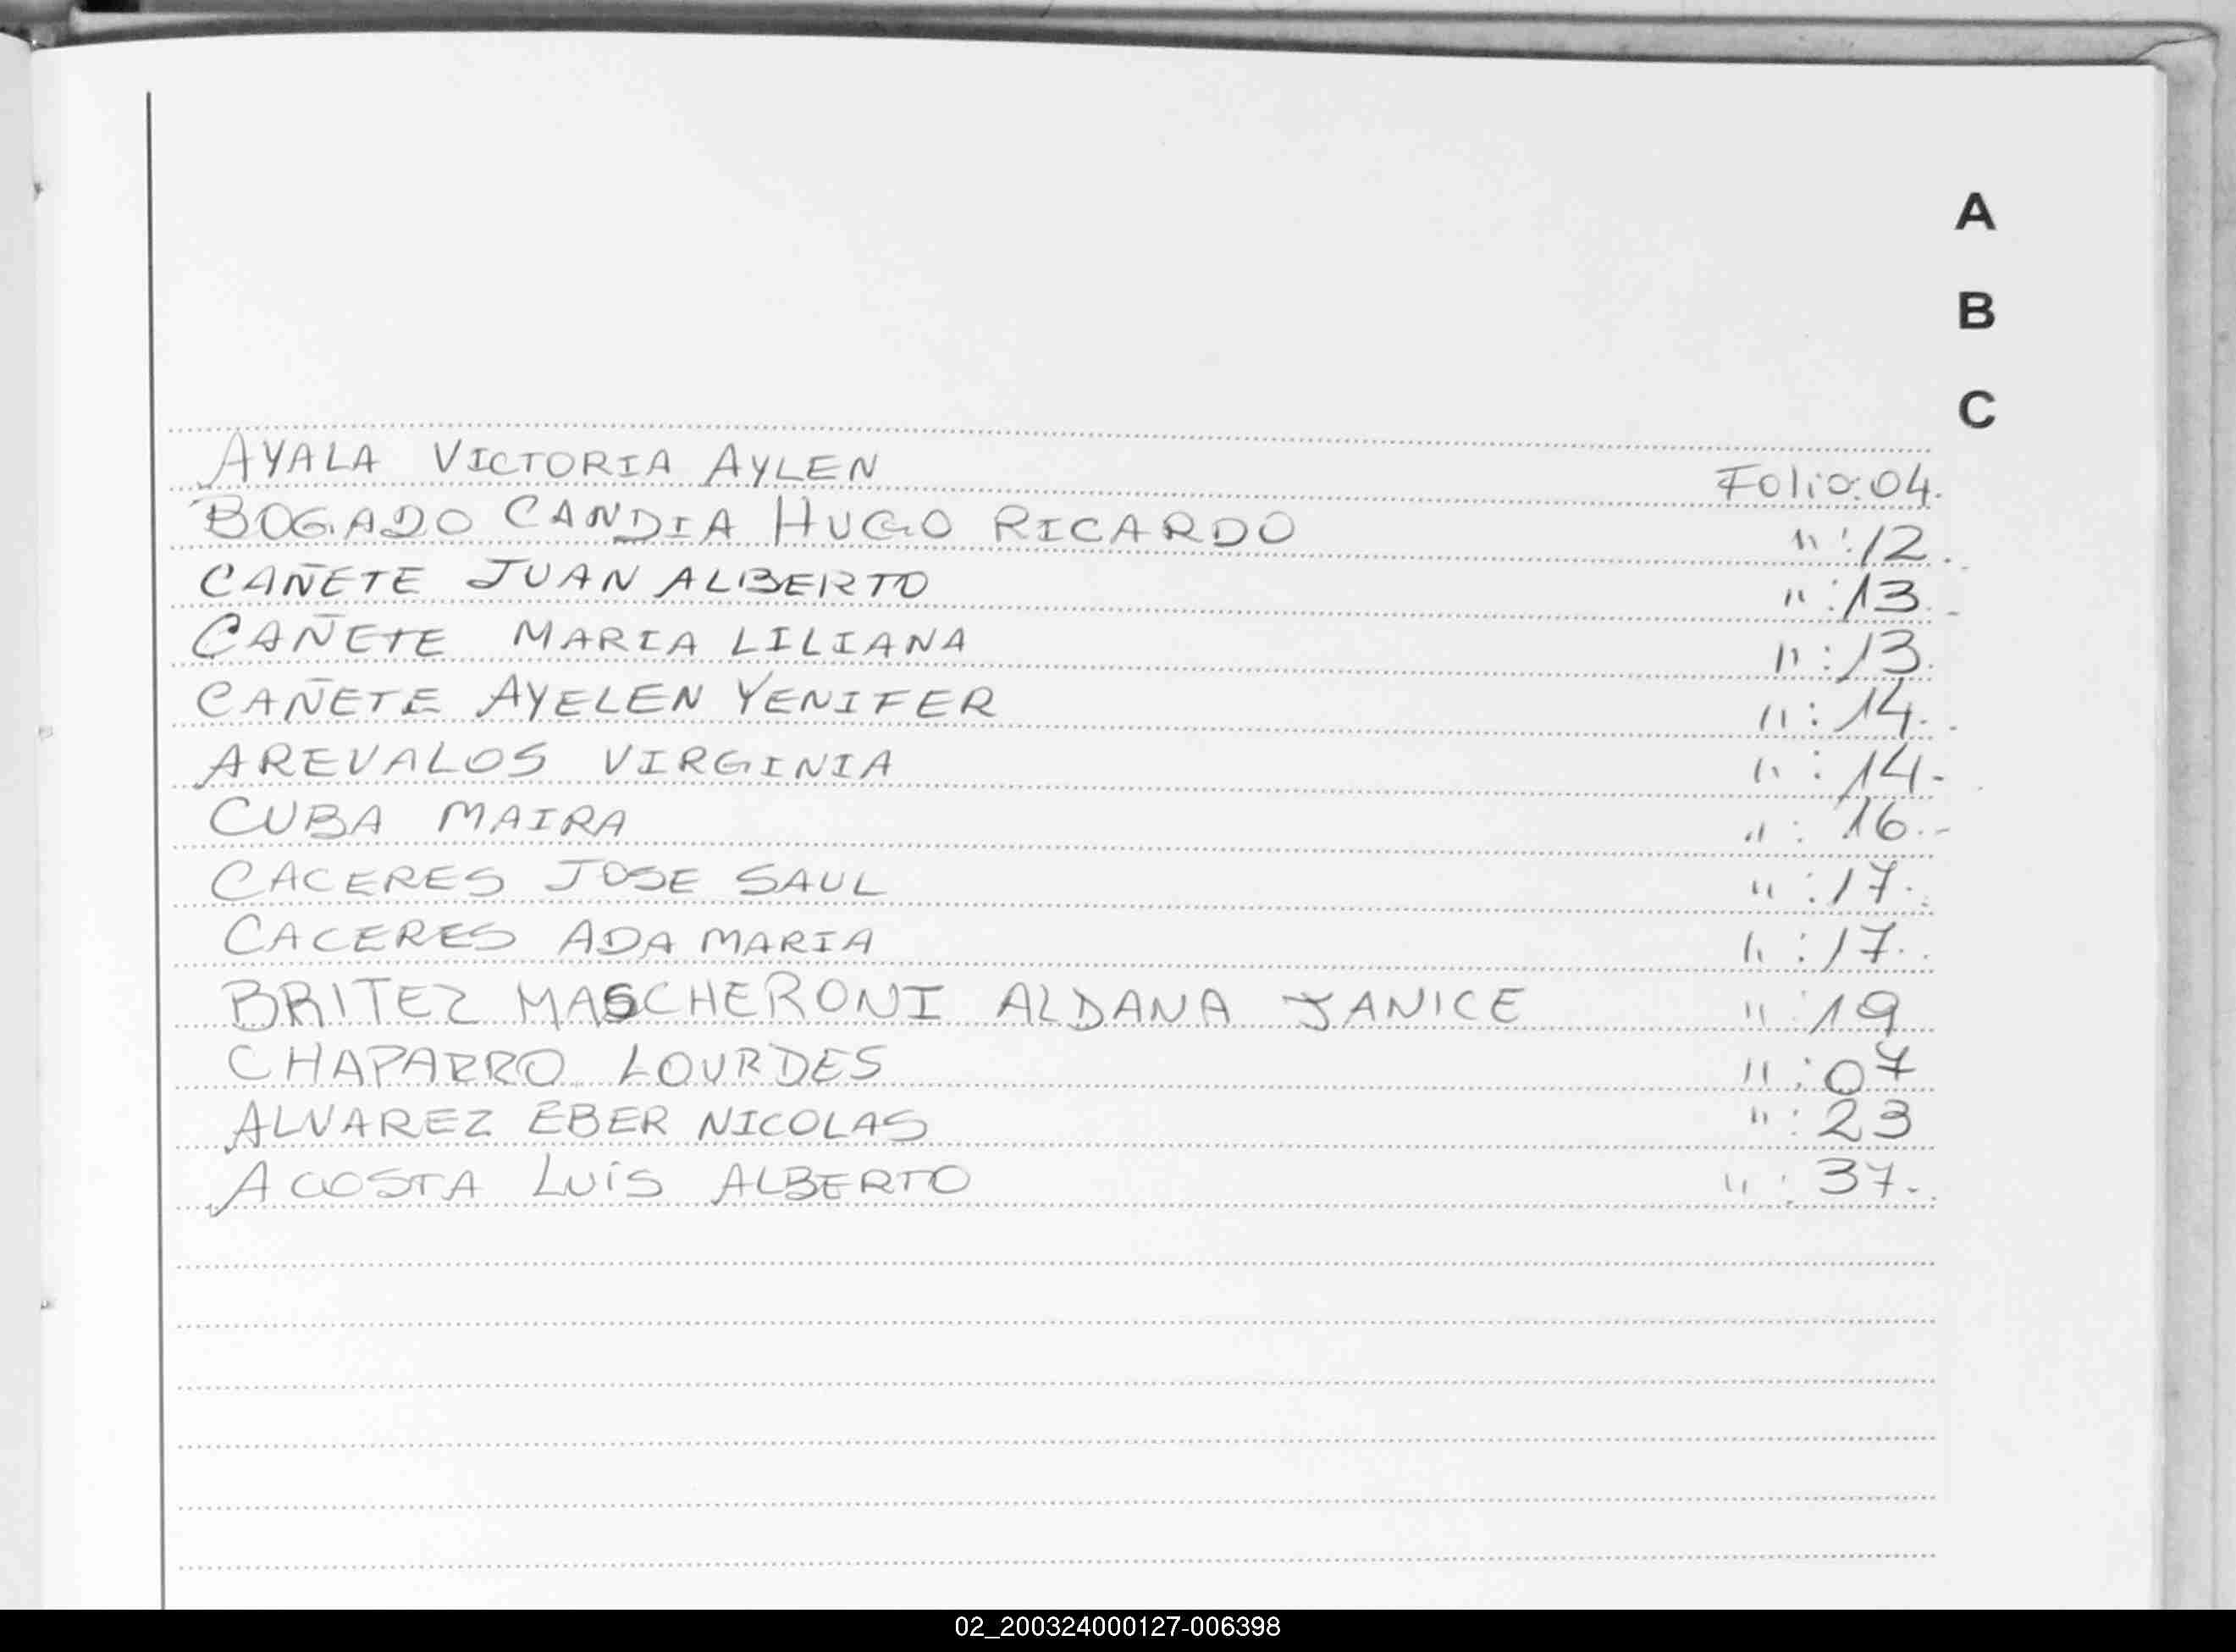 A
B
C
AYALA VICTORIA AYLEN Folio:04.
BOGADO CANDIA HUGO RICARDO " :12.
CAÑETE JUAN ALBERTO " :13.
CAÑETE MARIA LILIANA " :13.
CAÑETE AYELEN YENIFER " : 14.
AREVALOS VIRGINIA " : 14.
CUBA MAIRA " : 16.-
CACERES JOSE SAUL " :17.
CACERES ADA MARIA " :17.
BRITEZ MASCHERONI ALDANA JANICE " :19
CHAPARRO LOURDES " :07
ALVAREZ EBER NICOLAS " : 23
ACOSTA LUiS ALBERTO " : 37.
02_200324000127-006398